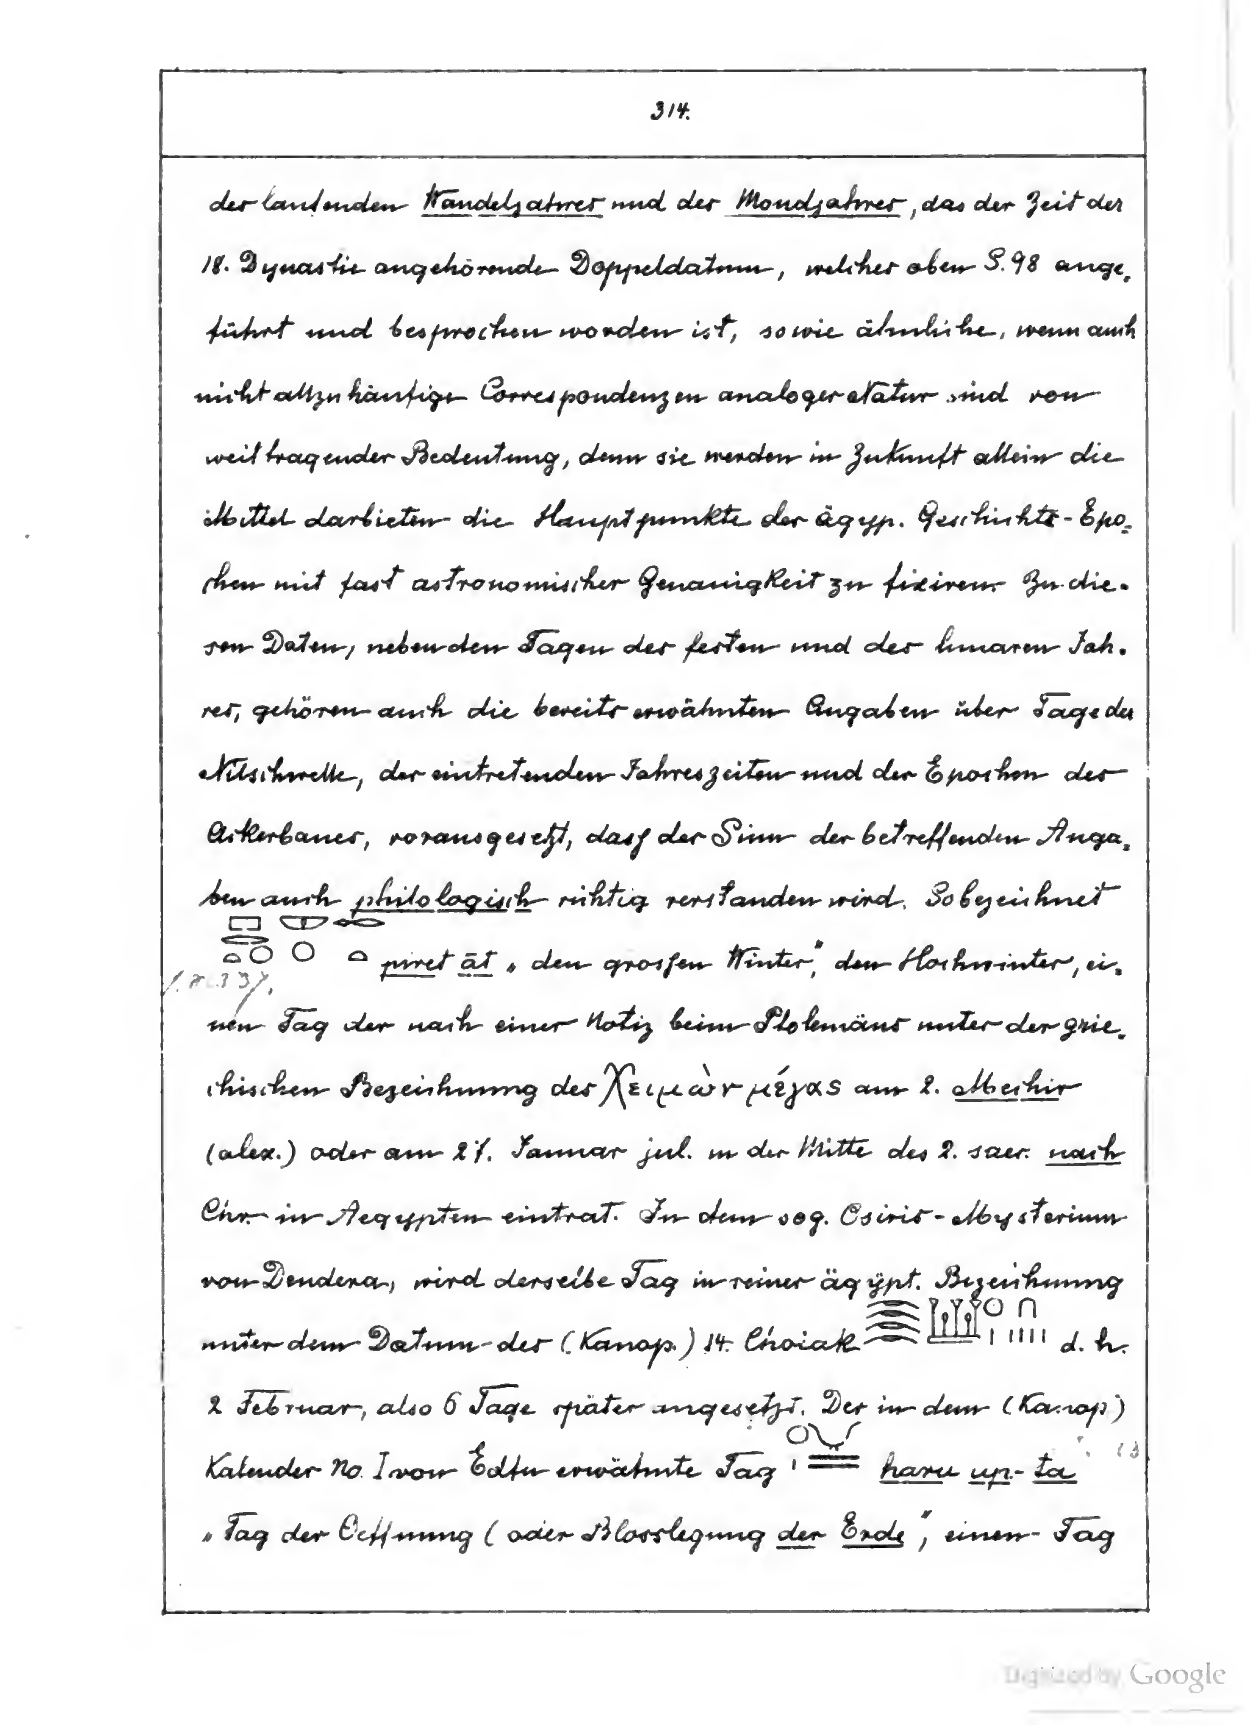 314.
des laufenden Wandeljahres und des Mondjahres, das der Zeit der
18. Dynastie angehörende Doppeldatum, welches oben S. 98 ange=
führt und besprochen worden ist, sowie ähnliche, wenn auch
nicht allzu häufige Correspondenzen analoger Natur sind von
weittragender Bedeutung, denn sie werden in Zukunft allein die
Mittel darbieten die Hauptpunkte der ägyp. Geschichts-Epo=
chen mit fast astronomischer Genauigkeit zu fixiren. Zu die=
sen Daten, neben den Tagen des festen und des lunaren Jah=
res, gehören auch die bereits erwähnten Angaben über Tage der
Nilschwelle, der eintretenden Jahreszeiten und der Epochen des
Ackerbaues, vorausgesetzt, dass der Sinn der betreffenden Anga=
ben auch philologisch richtig verstanden wird. So bezeichnet
piret āt „den grossen Winter“, den Hochwinter, ei=
nen Tag der nach einer Notiz beim Ptolemäus unter der grie=
chischen Bezeichnung des Χειμὼν μέγας am 2. Mechir
(alex.) oder am 27. Januar jul. in der Mitte des 2. saec. nach
Chr. in Aegypten eintrat. In dem sog. Osiris-Mysterium
von Dendera, wird derselbe Tag in reiner ägypt. Bezeichnung
unter dem Datum des (Kanop.) 14. Choiak d. h.
2 Februar, also 6 Tage später angesetzt. Der in dem (Kanop)
Kalender No. I von Edfu erwähnte Tag haru up-ta
„Tag der Oeffnung (oder Blosslegung der Erde“, einen Tag
Digitized by Google